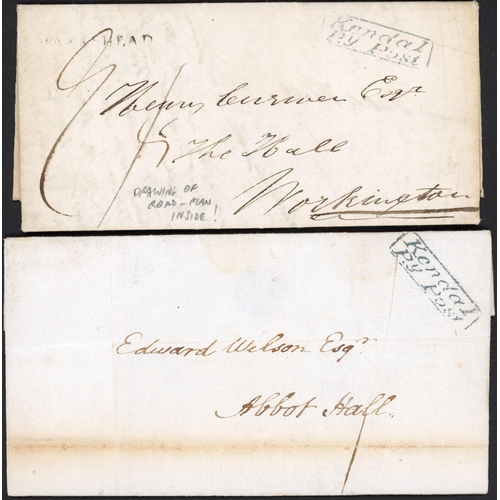 HEAD
Kendal
Py Post
Henry Curwen Esqr
The Hall
Workington
DRAWING OF
ROAD-PLAN
INSIDE!
Kendal
Py Post
Edward Wilson Esqr
Abbot Hall